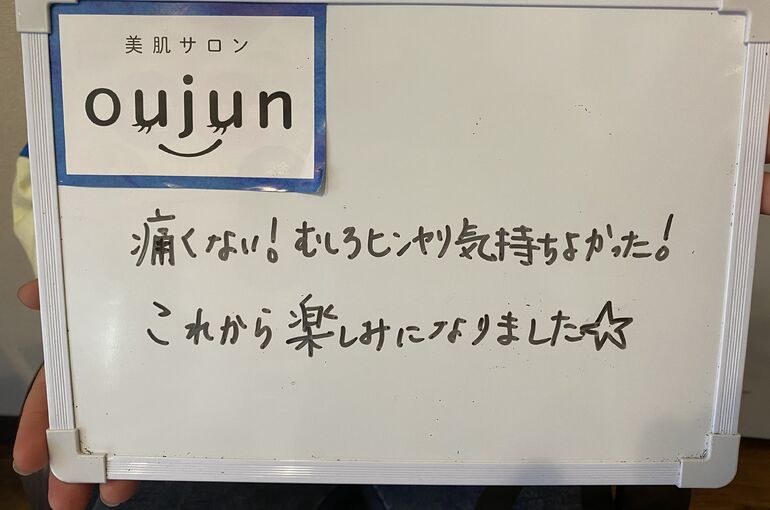 美肌サロン
oujun
痛くない！むしろヒンヤリ気持ちよかった！
これから楽しみになりました☆